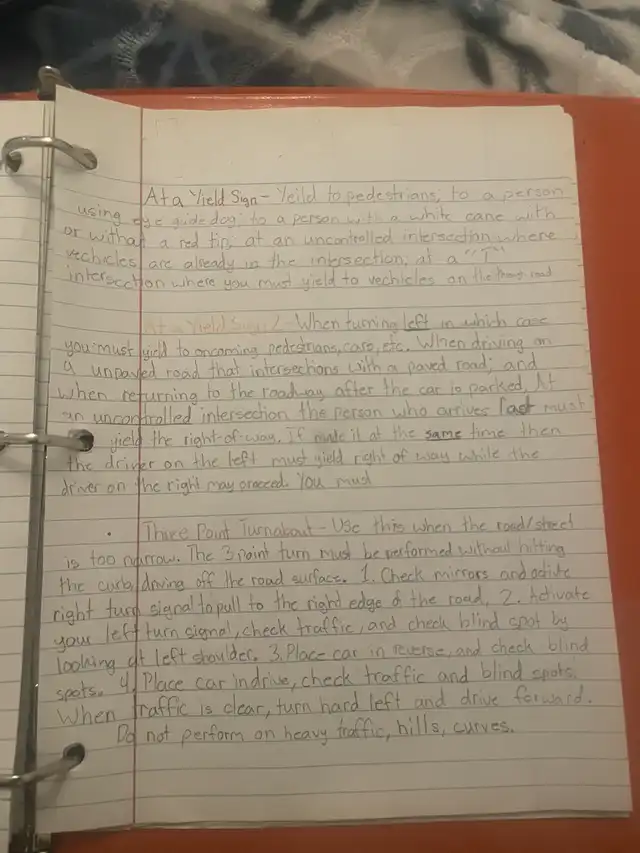 At a Yield Sign - Yeild to pedestrians, to a person
using eye guide dog; to a person with a white cane with
or without a red tip; at an uncontrolled intersection where
vechicles are already in the intersection; at a "T"
intersection where you must yield to vechicles on the through road
At a Yield Sign 2 - When turning left in which case
you must yield to oncoming pedestrians, cars, etc. When driving on
a unpaved road that intersections with a paved road; and
when returning to the roadway after the car is parked. At
an uncontrolled intersection the person who arrives last must
yield the right-of-way. If made it at the same time then
the driver on the left must yield right of way while the
driver on the right may proceed. You must
• Three Point Turnabout - Use this when the road/street
is too narrow. The 3 point turn must be performed without hitting
the curb, driving off the road surface. 1. Check mirrors and
right turn signal to pull to the right edge of the road. 2. Activate
your left turn signal, check traffic, and check blind spot by
looking at left shoulder. 3. Place car in reverse, and check blind
spots. 4. Place car in drive, check traffic and blind spots.
When traffic is clear, turn hard left and drive forward.
Do not perform on heavy traffic, hills, curves.